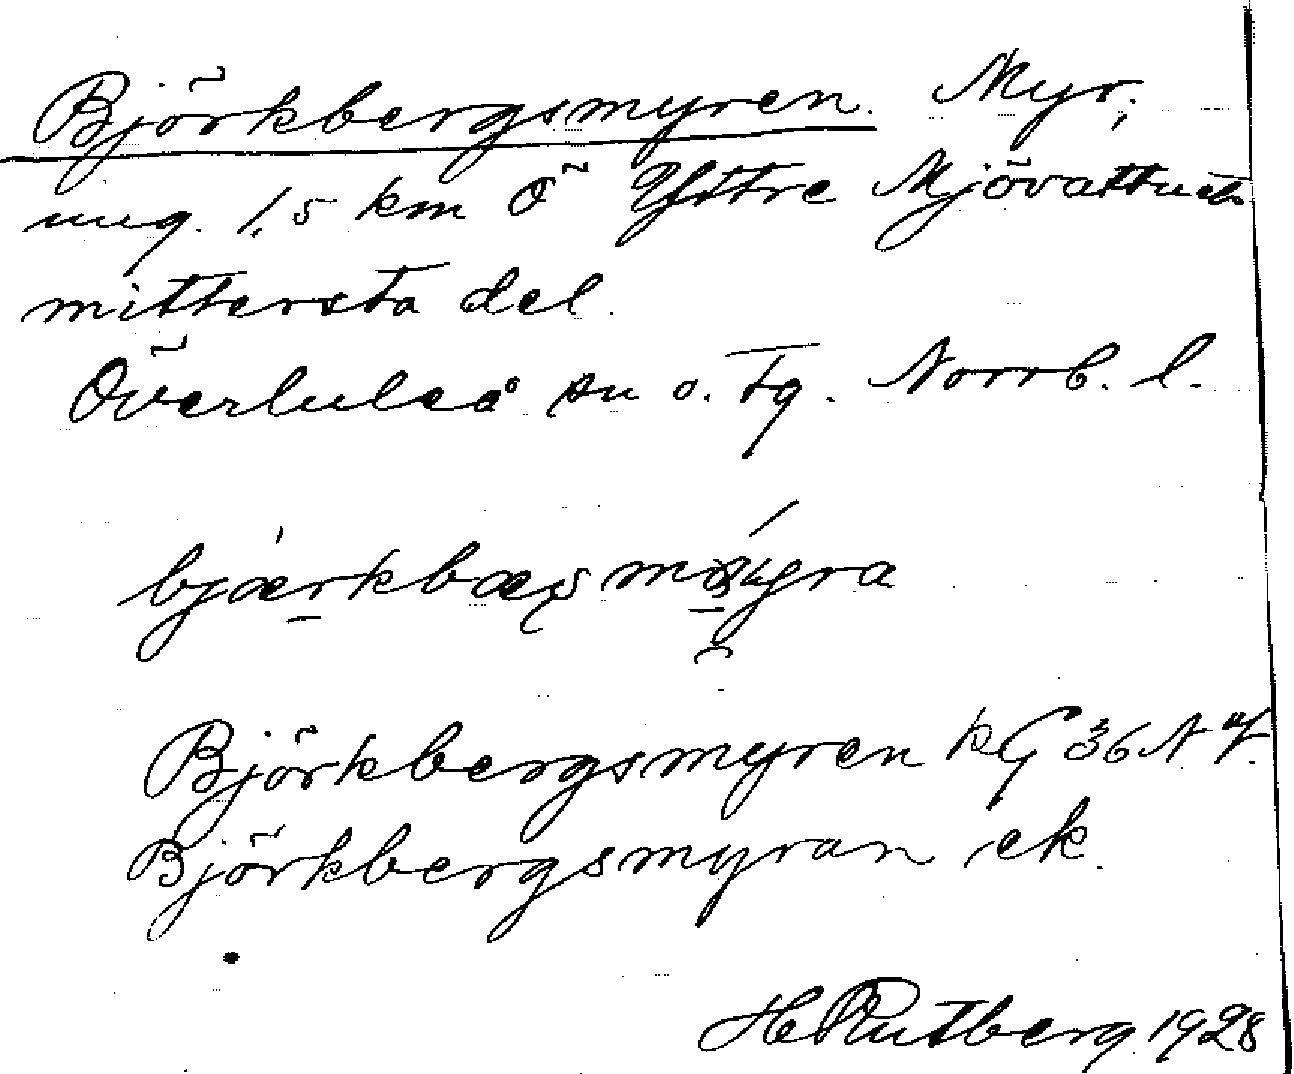 Björkbergsmyren. Myr;
ung. 1,5 km Ö Yttre Mjövattnets
mittersta del.
Överluleå sn o. tg. Norrb. l.
bjærkbæṣ
Björkbergsmyren kG 36 NV.
Björkbergsmyran ek.
H Rutberg 1928